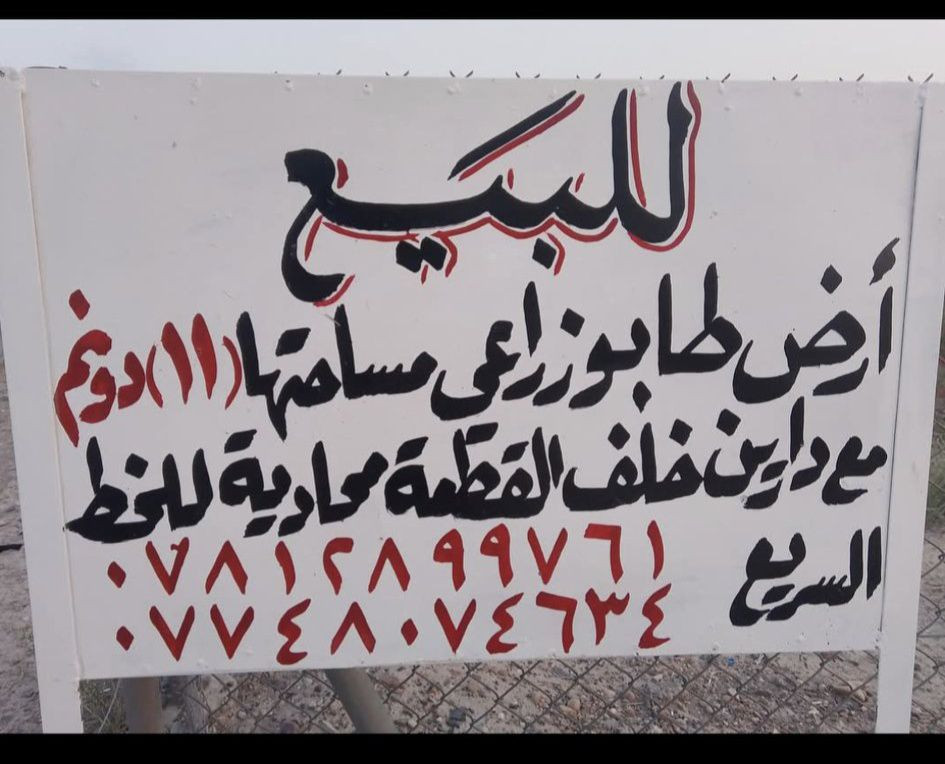 للبيع
أرض طابو زراعي مساحتها (١١) دونم
مع دارين خلف القطعة محادية للخط
السريع
٠٧٨١٢٨٩٩٧٦١
٠٧٧٤٨٠٧٤٦٣٤